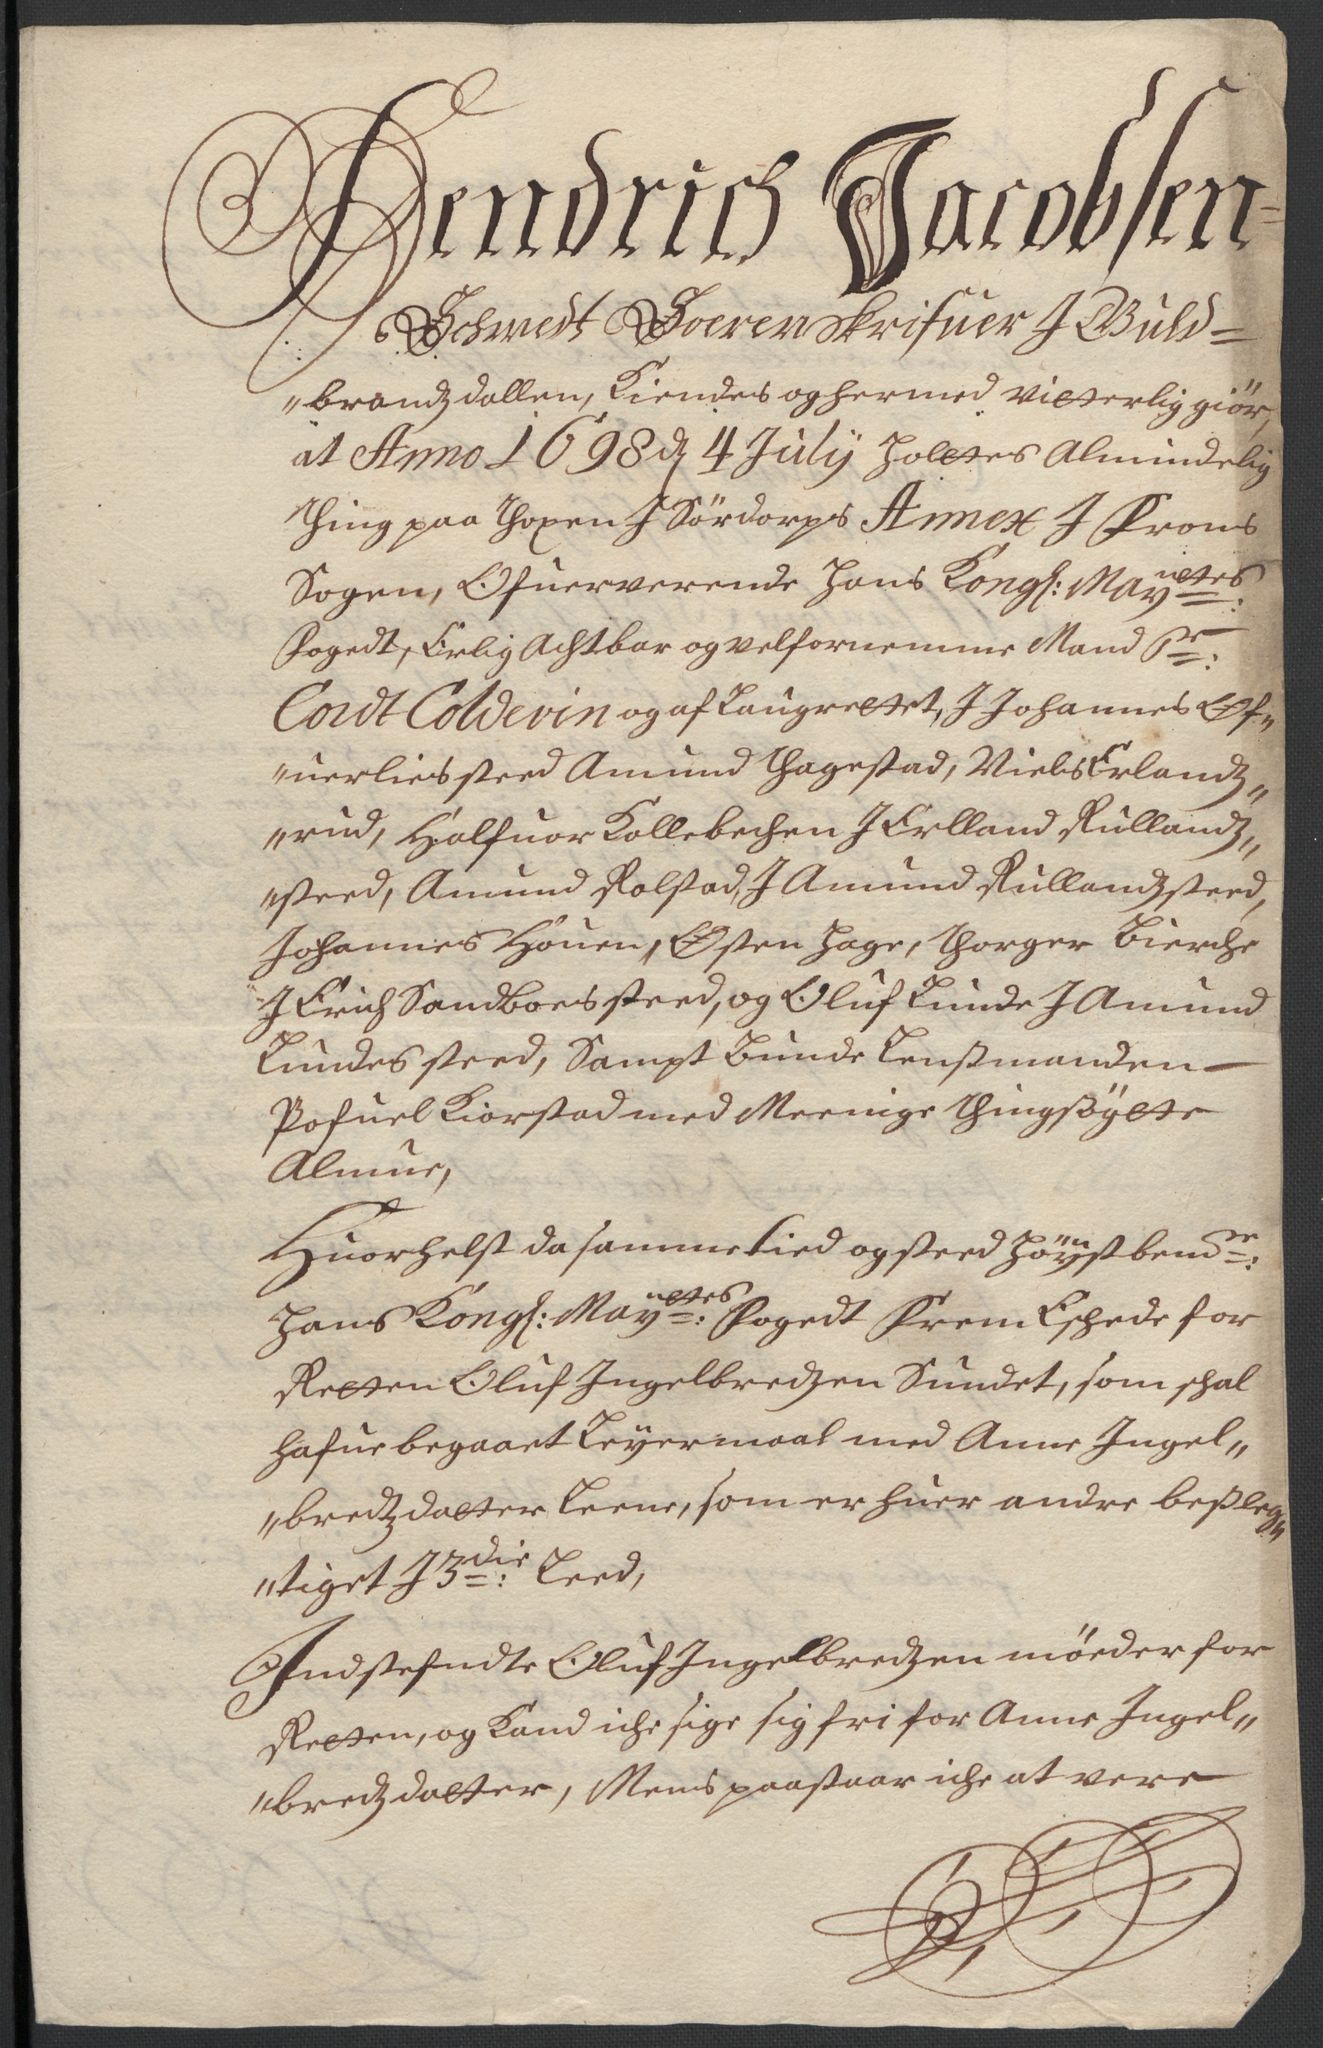 Hendrich Jacobsen
Schmedt Soerenskrifuer J Guld=
"brandz dallen, Kiendes og hermed vitterlig giör,
at Anno 1698 d 4 July holtes Almindelig
thing paa thoxen J Sördorps Annex J Frons
Sogen, Ofuerverende hans Kongl: May:ttes
fogedt, Erlig Achtbar og velfornemme Mand Sr:
Cordt Coldevin og af Laugrettet, J Johannes Of"
"uerlies steed Amund thagestad, Niels Erlandz"
"rud, Halfuor Kollebechen J Erlland Rullandz"
"steed, Amund Rolstad, J Amund Rullandzsteed,
Johannes Houen, Osten hage, thorger Bierche
J Erich Sandboes steed, og Oluf Lunde J Amund
Lundes steed, Sampt Bunde Lenßmanden
Pofuel Kiorstad med Meenige thingsögte
Almue,
Huorhelst da samme tied og steed höystbemte:
hans Kongl: May:ttes fogedt frem Eschede for
Retten Oluf Ingelbredzen Sundet, som schal
hafue begaaet Leyermaal med Anne Ingel"
"bredzdatter Leene, som er huer andre beßleg"
"tiget J 3die: Leed,
Indstefndte Oluf Ingelbredzen möeder for
Retten, og Kand iche sige sig fri for Anne Ingel"
"bredzdatter, Mens paastaar iche at vere